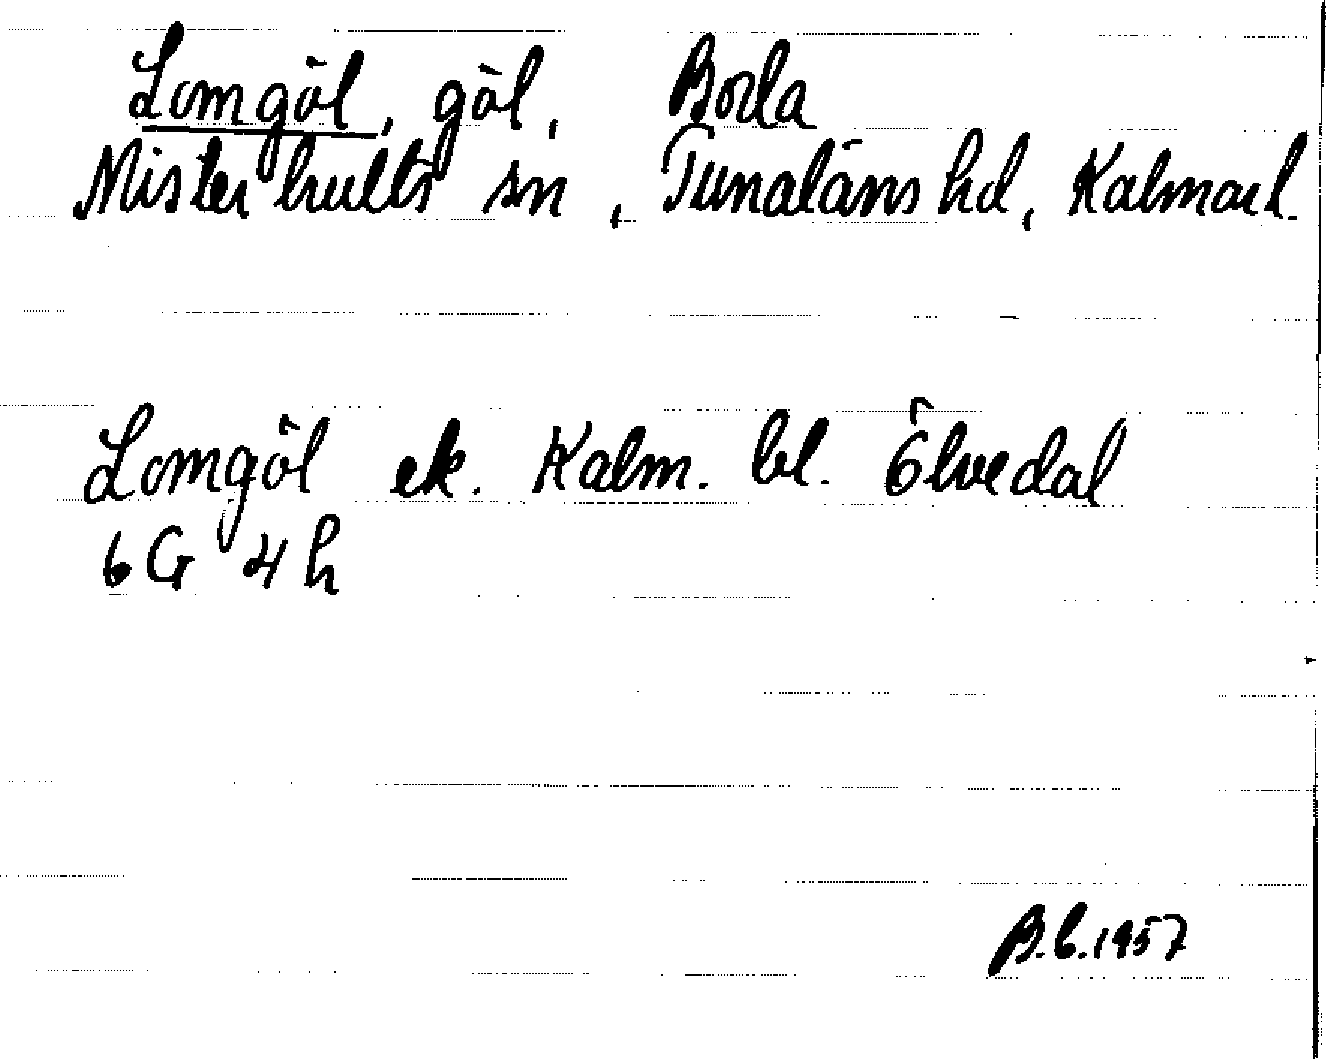 Lomgöl, göl, Boda
Misterhults sn, Tunaläns hd, Kalmar l.
Lomgöl ek. Kalm. bl. Ölvedal
6G 4h
B.C. 1957